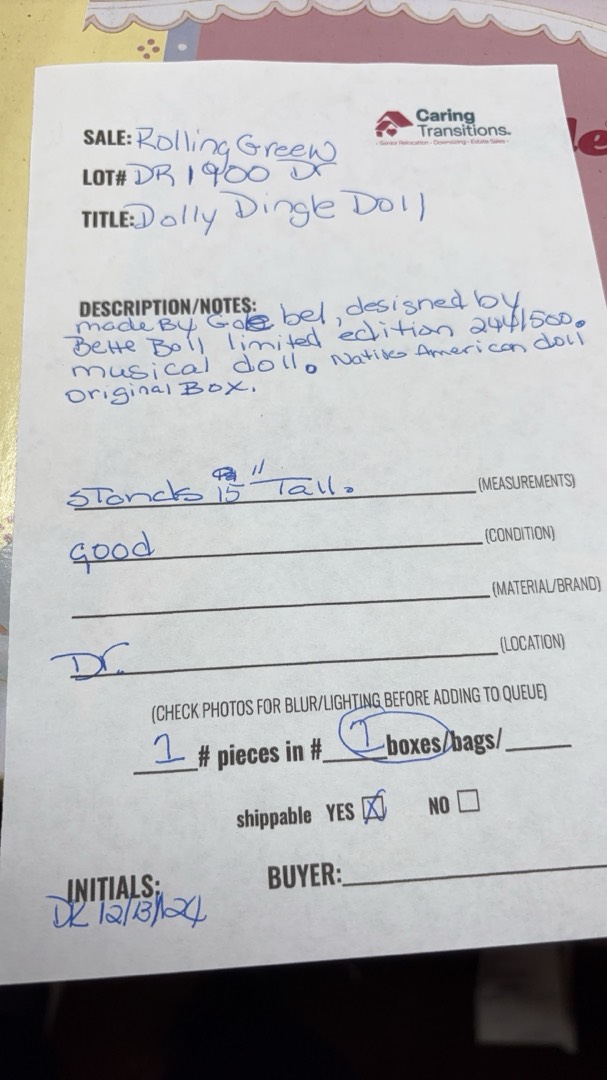 Caring
Transitions.
Senior Relocation - Downsizing - Estate Sales
SALE: Rolling Green
LOT# DR 1900 Dr
TITLE: Dolly Dingle Doll
DESCRIPTION/NOTES:
made By Goebel, designed by
Bette Ball limited edition 244/500.
musical doll. Native American doll
original Box.
Stands 15" Tall. (MEASUREMENTS)
good (CONDITION)
(MATERIAL/BRAND)
Dr. (LOCATION)
(CHECK PHOTOS FOR BLUR/LIGHTING BEFORE ADDING TO QUEUE)
1 # pieces in # 1 boxes/bags/
shippable YES NO
INITIALS: BUYER:
DK 12/13/24